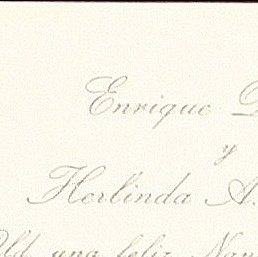 Enrique
y
Herlinda A.
una feliz